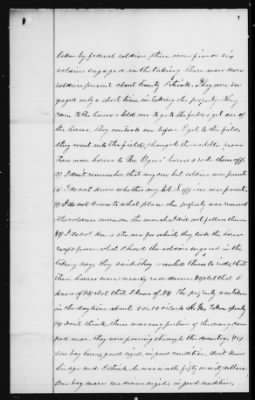 taken by federal soldiers there were five or six
soldiers engaged in the taking there were more
soldiers present about twenty I think. They were en-
gaged only a short time in taking the property. They
came to the house & told me to go to the field & get one of
the horses, they overtook me before I got to the field,
they went into the field, changed the saddles from
their own horses to Mr. horses & rode them off.
I don't remember that any one but soldiers were present
I do not know whether any officer was present.
I do not know to what place the property was removed
soldiers were on the march I did not follow them
I do not know the use for which they took the horses
except from what I heard the soldiers engaged in the
taking say, they said they wanted them to ride, that
their horses were nearly rode down. Not that I
know of Not that I know of. The property was taken
in the daytime about 9 or 10 o'clock
I don't think there was any portion of the army camp-
ed near. They were passing through the country.
One bay horse good sized, in good condition, don't know
his age and I think he was worth fifty or sixty dollars.
One bay mare medium sized in good condition,